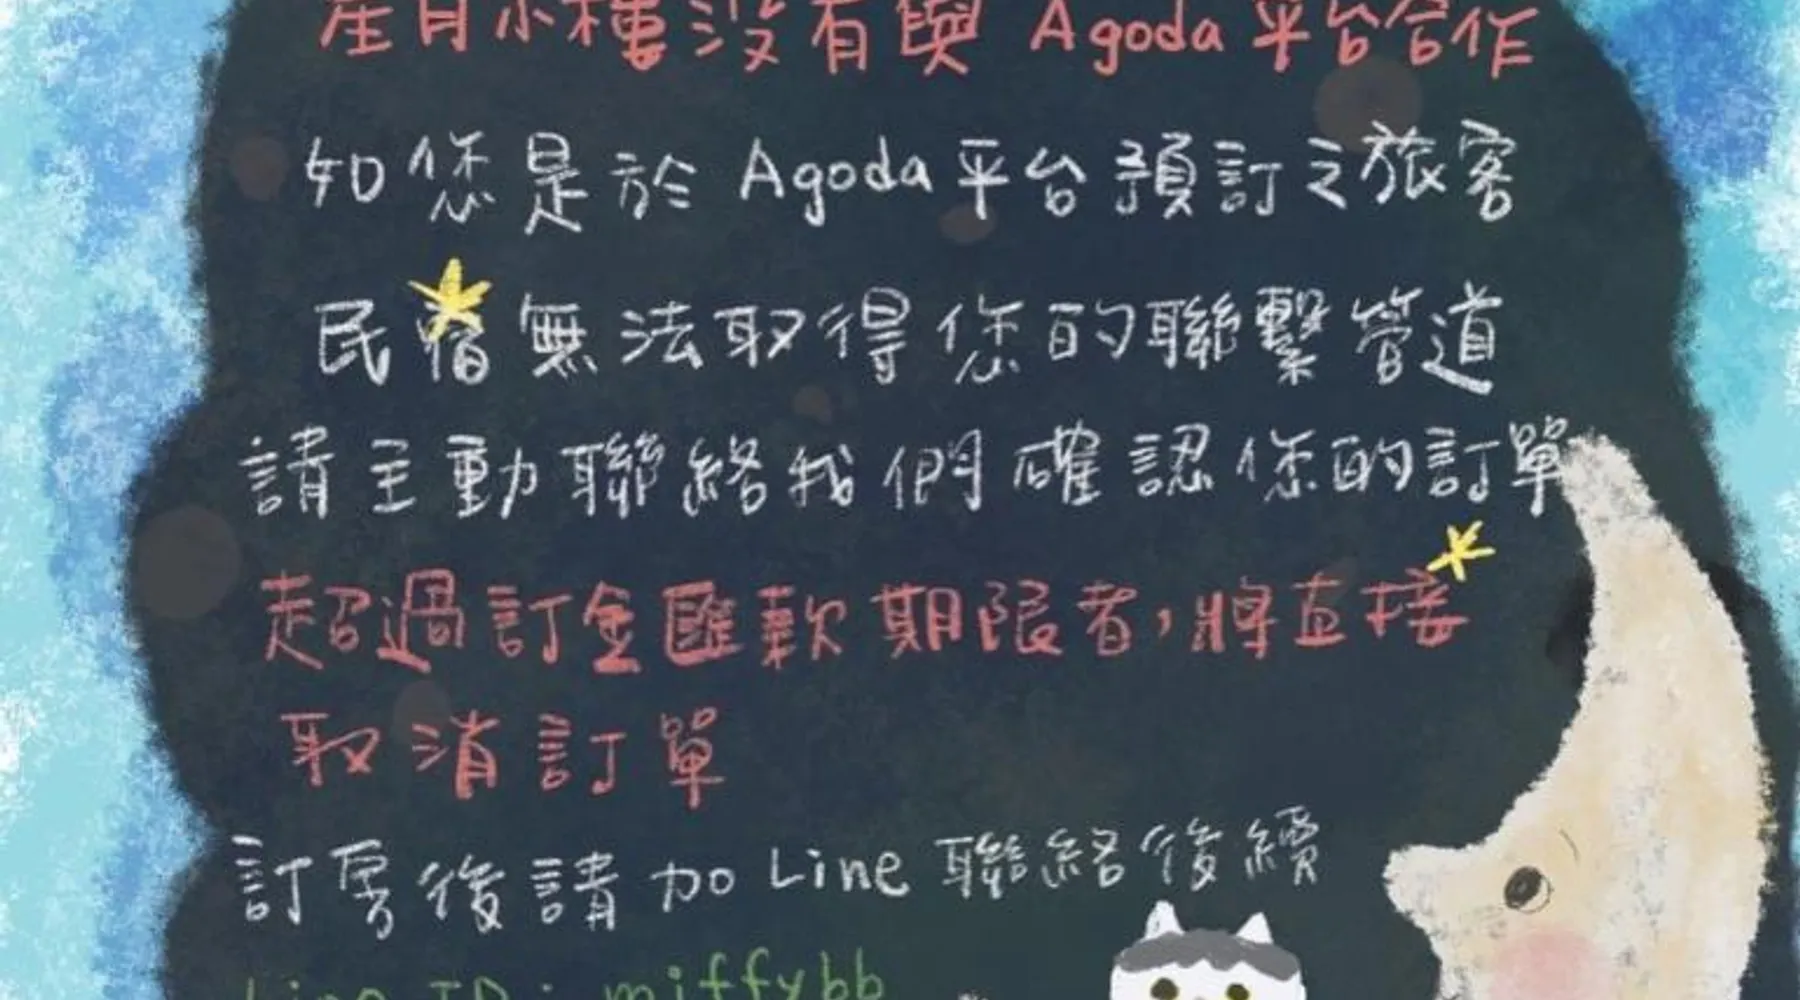 星月小樓沒有與 Agoda 平台合作
如您是於 Agoda 平台預訂之旅客
民宿無法取得您的聯繫管道
請主動聯絡我們確認您的訂單
超過訂金匯款期限者，將直接
取消訂單
訂房後請加 Line 聯絡後續
Line ID : miffybb